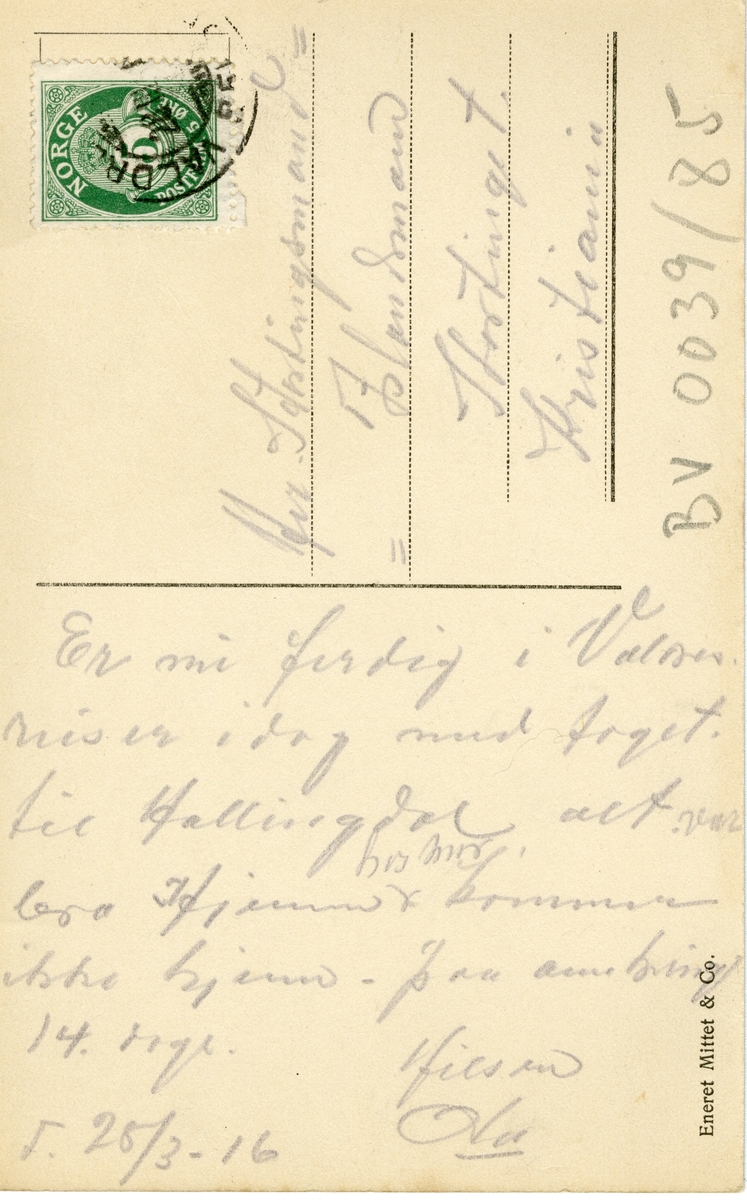 NORGE
5 ØRE
POSTFRIM
VALDR
Hr. Stortingsmand =
Blandsmand
=
Stortinget.
Kristiania
BV 0039/85
Er nu ferdig i Valdres.
reiser idag med toget.
til Hallingdal alt var
hos mor.
bra Hjemme kommer
ikke hjem - paa omkring
14. dage.
Hilsen
Ola
d. 25/3-16
Eneret Mittet & Co.